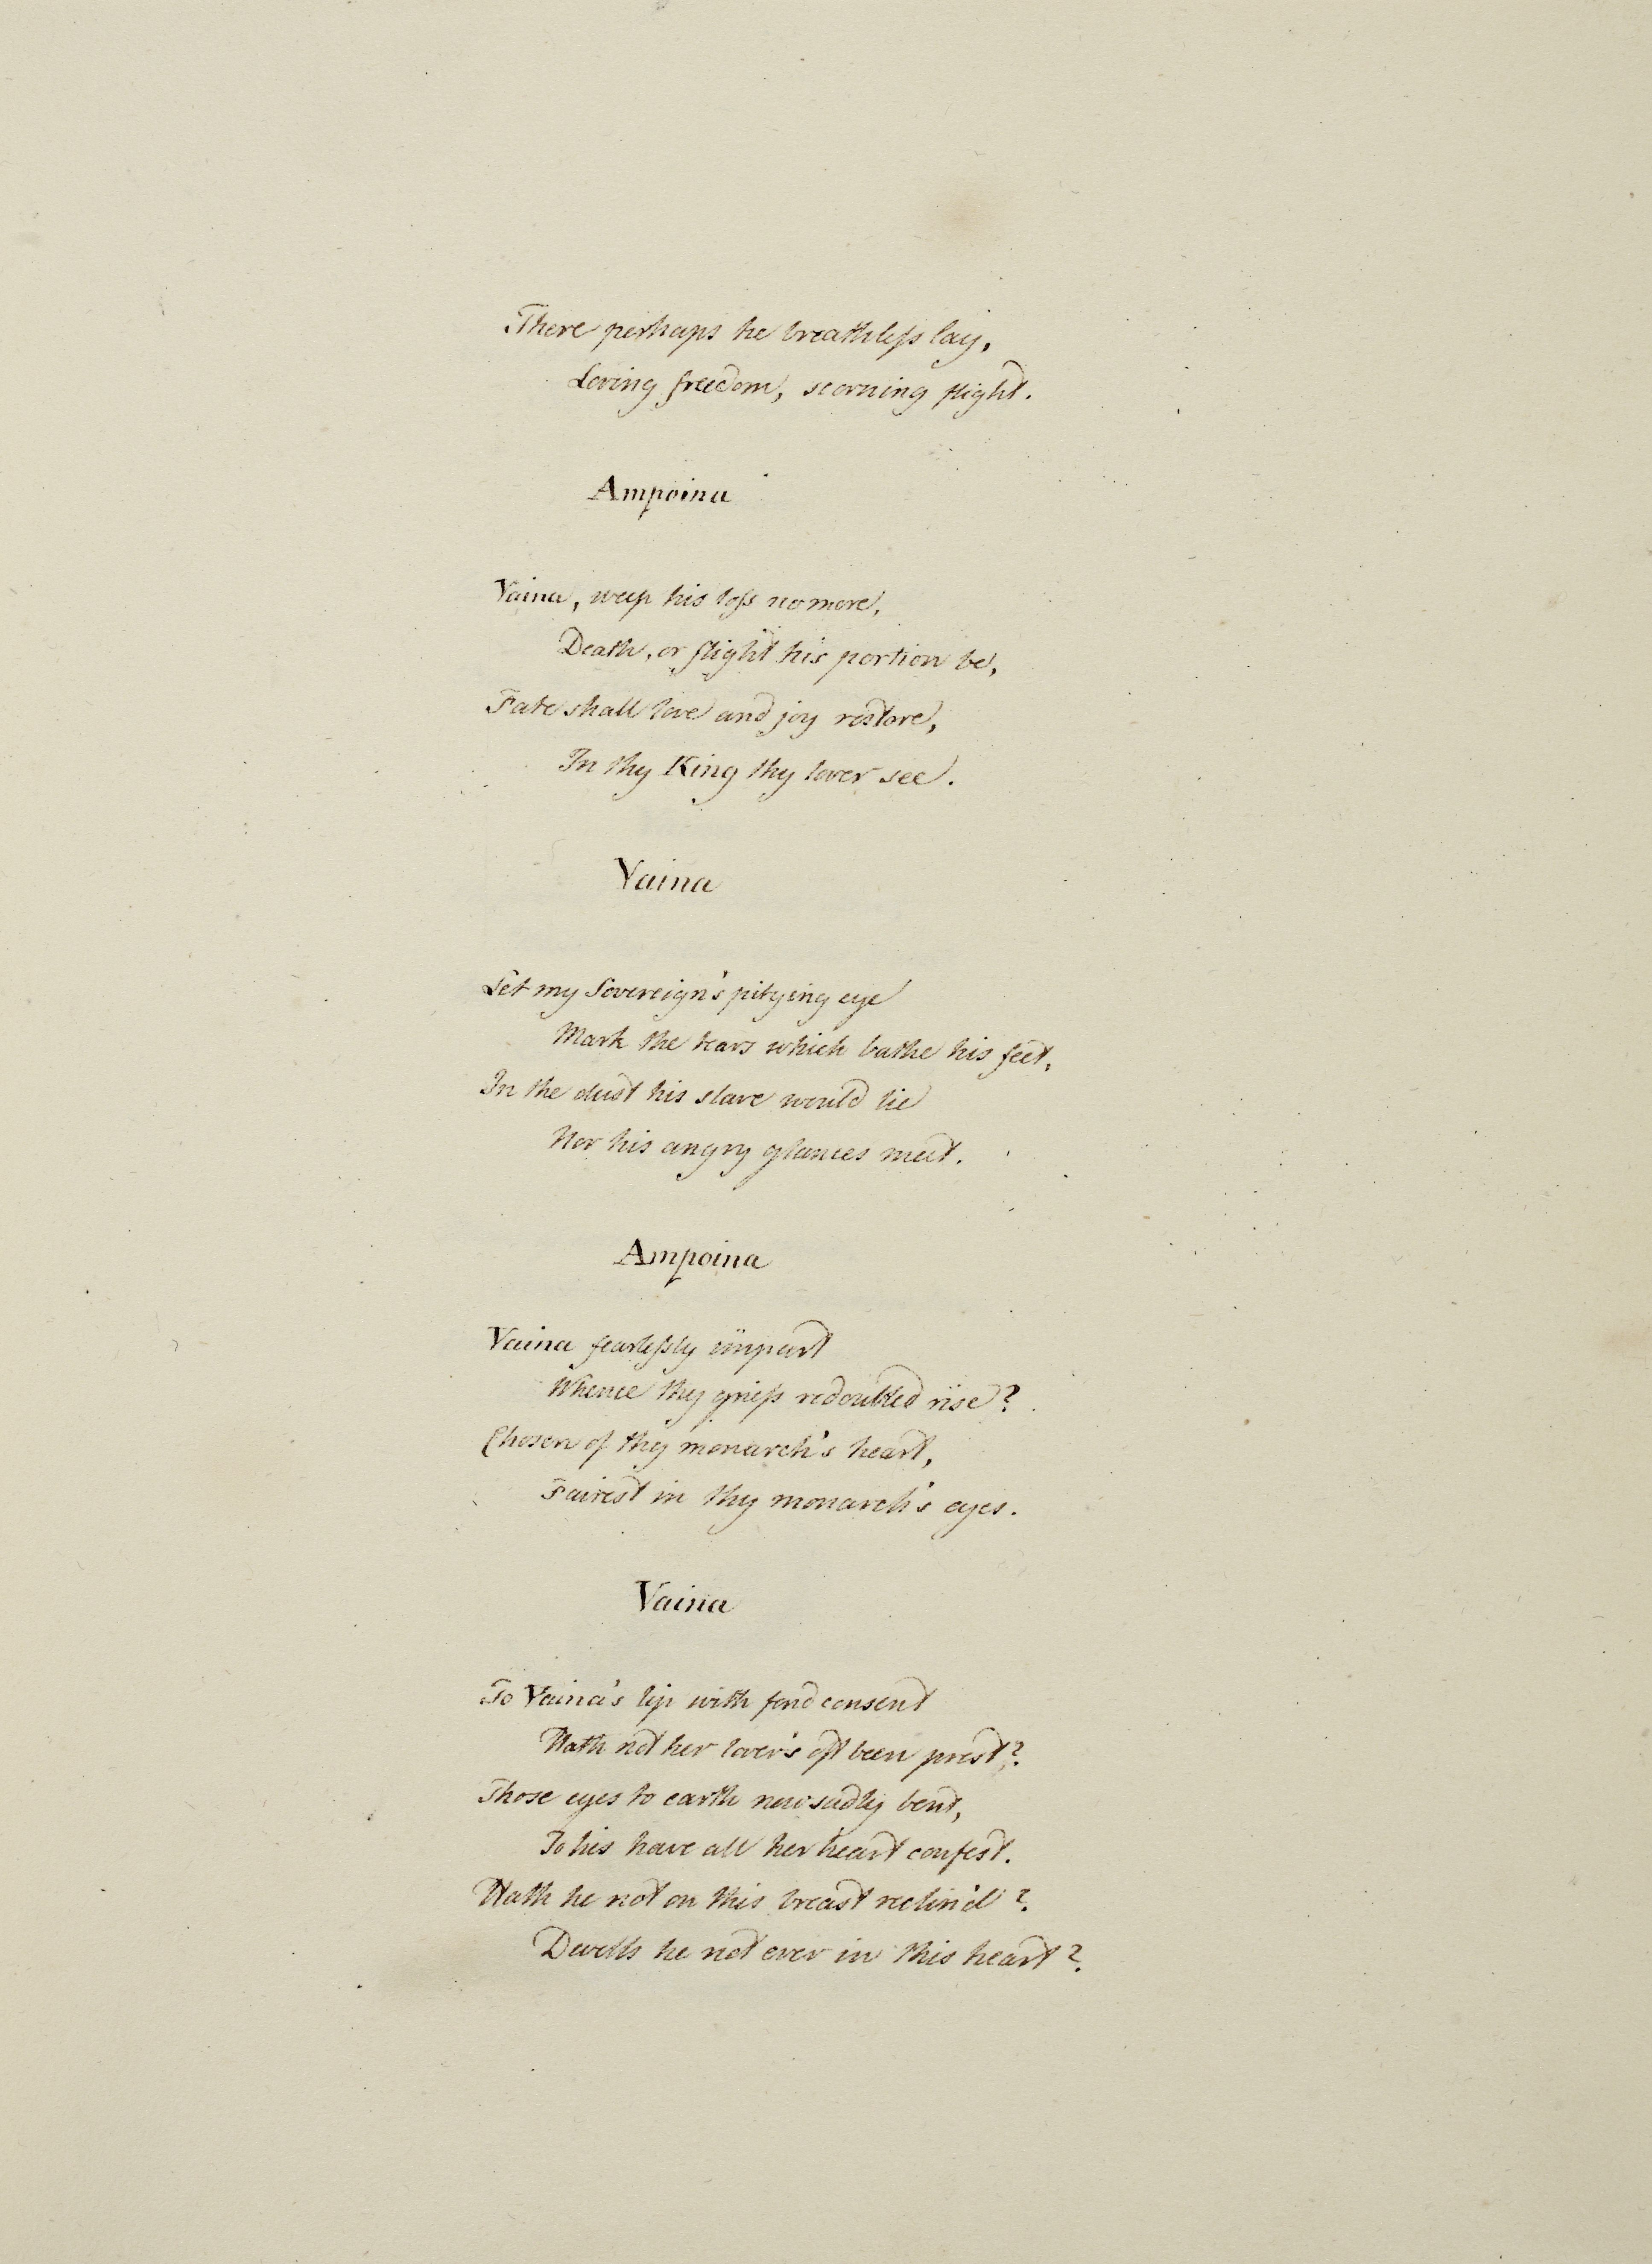 There perhaps he breathleſs lay,
Loving freedom, scorning flight.
Ampoina
Vaina, weep his loſs no more,
Death, or flight his portion be,
Fate shall love and joy restore,
In thy King thy lover see.
Vaina
Let my Sovereign's pitying eye
Mark the tears which bathe his feet,
In the dust his slave would lie
Nor his angry glances meet.
Ampoina
Vaina fearleſsly impart
Whence thy griefs redoubled rise?
Chosen of thy monarch's heart,
Fairest in thy monarch's eyes.
Vaina
To Vaina's lip with fond consent
Hath not her lover's oft been prest?
Those eyes to earth now sadly bent,
To his have all her heart confest.
Hath he not on this breast reclin'd?
Dwells he not ever in this heart?